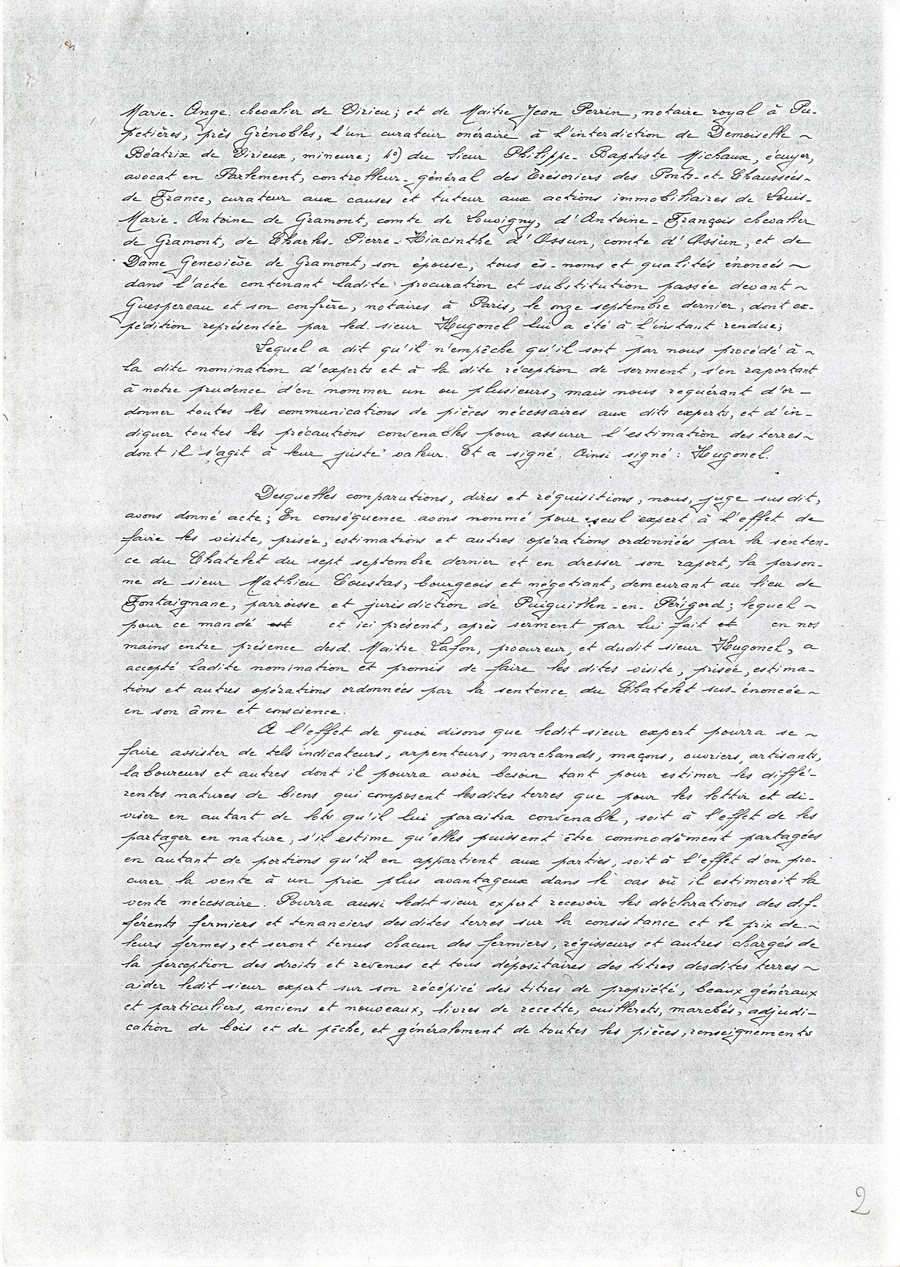 Marie-Ange chevalier de Virieu; et de Maitre Jean Perrin, notaire royal à Pu-
petières, près Grénobles, l'un curateur onéraire à l'interdiction de Demoiselle ~
Béatrix de Virieux, mineure; 4º) du sieur Philippe-Baptiste Michaux, écuyer,
avocat en Parlement, controlleur-général des Trésoriers des Ponts-et-Chaussées-
de France, curateur aux causes et tuteur aux actions immobiliaires de Louis-
Marie-Antoine de Gramont, comte de Louvigny, d'Antoine-François chevalier
de Gramont, de Charles-Pierre-Hiacinthe d'Ossun, comte d'Ossun, et de
Dame Geneviève de Gramont, son épouse, tous ès-noms et qualités énoncés ~
dans l'acte contenant ladite procuration et substitution passée devant ~
Guespereau et son confrère, notaires à Paris, le onze septembre dernier, dont ex-
pédition représentée par led. sieur Hugonel lui a été à l'instant rendue;
Lequel a dit qu'il n'empêche qu'il soit par nous procédé à ~
la dite nomination d'experts et à la dite réception de serment, s'en raportant
à notre prudence d'en nommer un ou plusieurs, mais nous requérant d'or-
donner toutes les communications de pièces nécessaires aux dits experts, et d'in-
diquer toutes les précautions convenables pour assurer l'estimation des terres ~
dont il s'agit à leur juste valeur. Et a signé. Ainsi signé: Hugonel.
Desquelles comparutions, dires et réquisitions, nous, juge susdit,
avons donné acte; En conséquence avons nommé pour seul expert à l'effet de
faire les visite, prisée, estimations et autres opérations ordonnées par la senten-
ce du Chatelet du sept septembre dernier et en dresser son raport, la person-
ne de sieur Mathieu Coustas, bourgeois et négotiant, demeurant au lieu de
Fontaignane, parroisse et jurisdiction de Puiguilhen-en-Périgord; lequel ~
pour ce mandé est et ici présent, après serment par lui fait et en nos
mains entre présence desd. Maitre Lafon, procureur, et dudit sieur Hugonel, a
accepté ladite nomination et promis de faire les dites visite, prisée, estima-
tions et autres opérations ordonnées par la sentence du Chatelet sus-énoncée ~
en son âme et conscience.
A l'effet de quoi disons que ledit sieur expert pourra se ~
faire assister de tels indicateurs, arpenteurs, marchands, maçons, ouvriers, artisants,
laboureurs et autres dont il pourra avoir besoin tant pour estimer les diffé-
rentes natures de biens qui composent lesdites terres que pour les lottir et di-
viser en autant de lots qu'il lui paraitra convenable, soit à l'effet de les
partager en nature, s'il estime qu'elles puissent être commodément partagées
en autant de portions qu'il en appartient aux parties, soit à l'effet d'en pro-
curer la vente à un prix plus avantageux dans le cas où il estimeroit la
vente nécessaire. Pourra aussi ledit sieur expert recevoir les déclarations des dif-
férents fermiers et tenanciers desdites terres sur la consistance et le prix de ~
leurs fermes, et seront tenus chacun des fermiers, régisseurs et autres chargés de
la perception des droits et revenus et tous dépositaires des titres desdites terres ~
aider ledit sieur expert sur son récépicé des titres de propriété, beaux généraux
et particuliers, anciens et nouveaux, livres de recette, cuillerets, marchés, adjudi-
cation de bois et de pêche, et généralement de toutes les pièces, renseignements
2